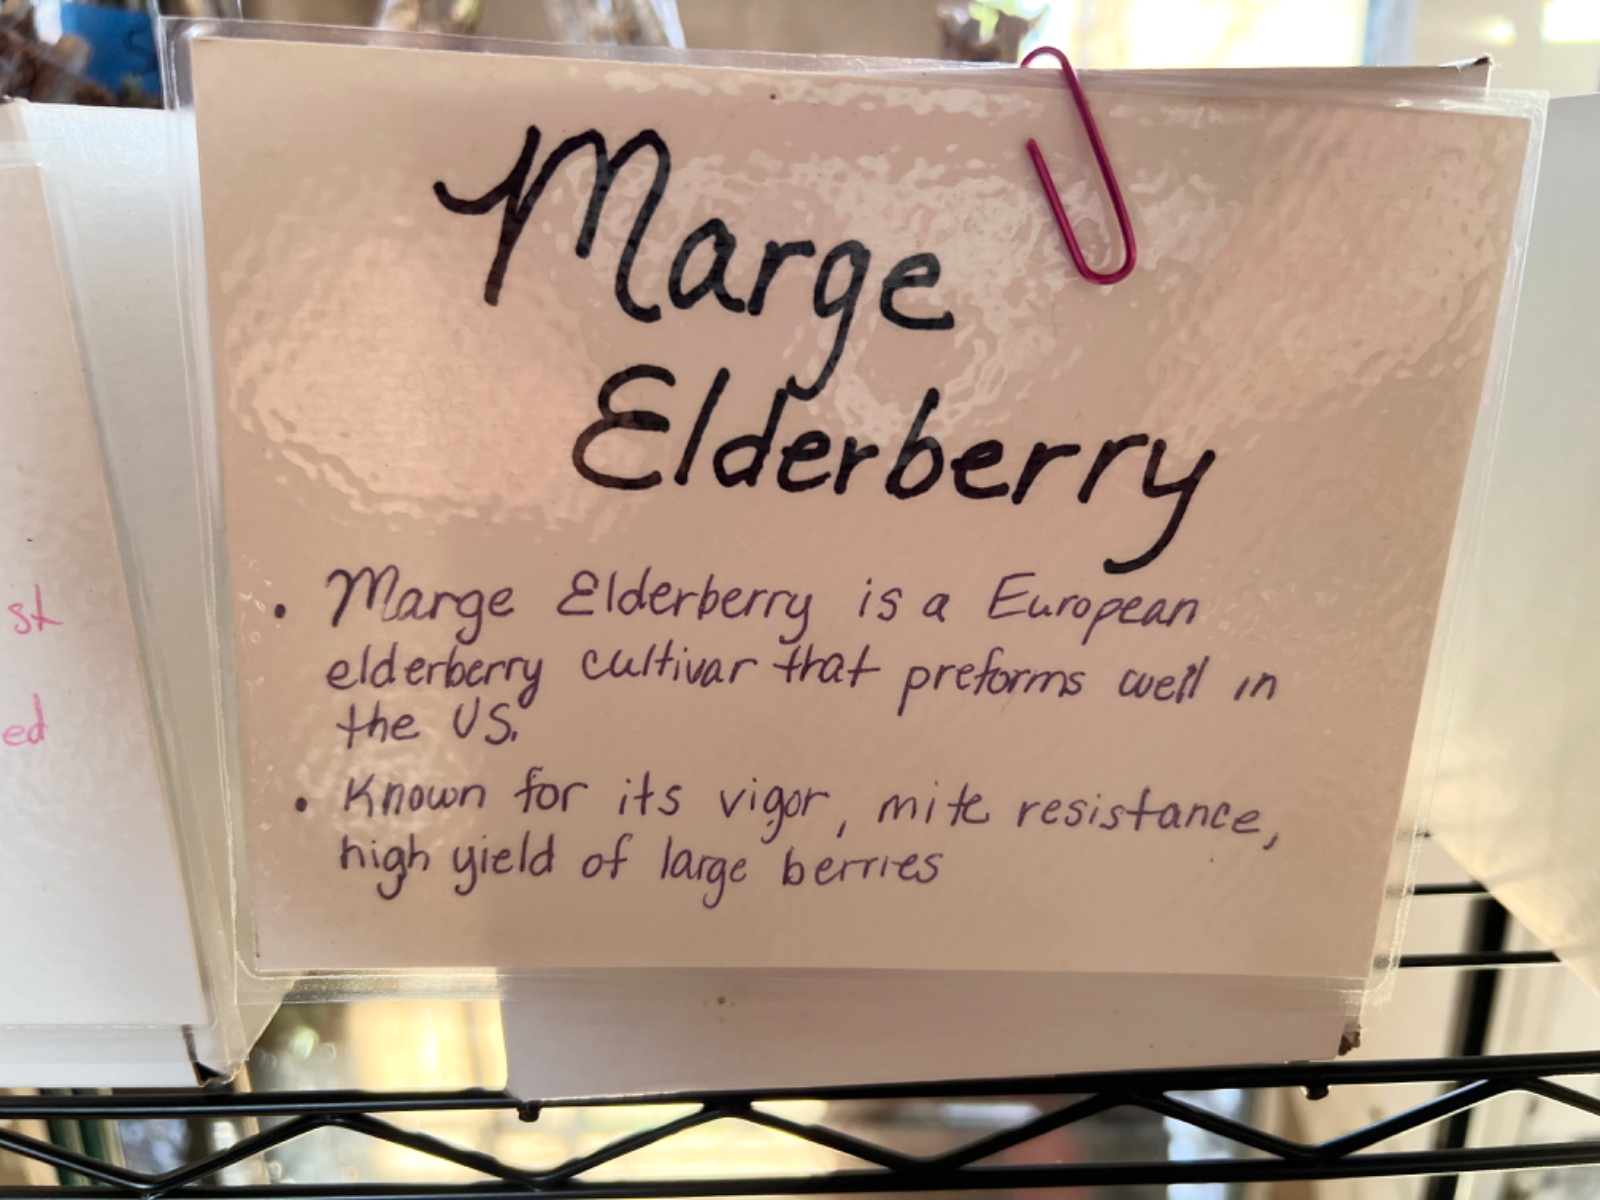 Marge
Elderberry
• Marge Elderberry is a European
elderberry cultivar that preforms well in
the US.
• Known for its vigor, mite resistance,
high yield of large berries
st
ed